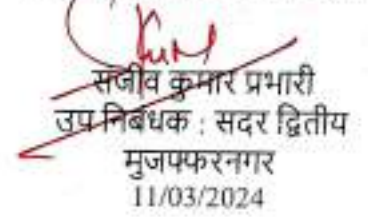 संजीव कुमार प्रभारी
उप निबंधक : सदर द्वितीय
मुजफ्फरनगर
11/03/2024